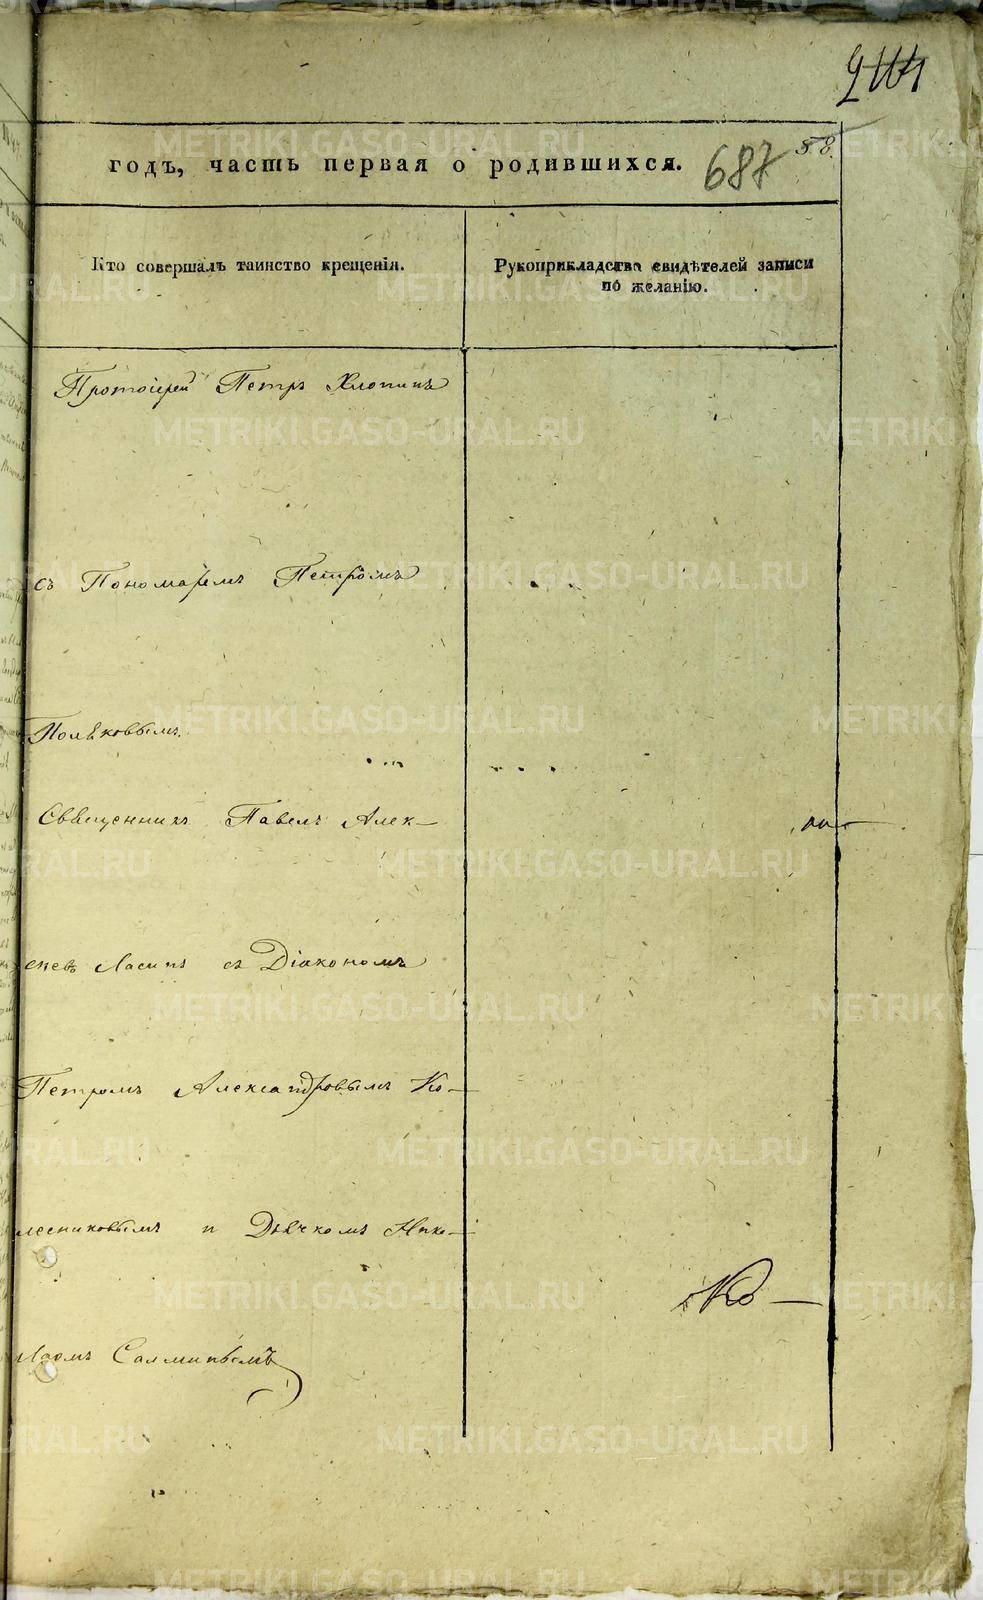 годъ, часть первая о родившихся. 687 58.
Кто совершалъ таинство крещенія.
Рукоприкладство свидѣтелей записи
по желанію.
Протоіерей Петръ Хлопинъ
съ Пономаремъ Петромъ
Поляковымъ.
Священникъ Павелъ Алек-
съ Діакономъ
Петромъ Александровымъ Ко-
лесниковымъ и Дьячкомъ Нико-
лаемъ
METRIKI.GASO-URAL.RU